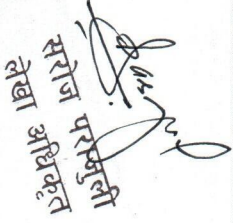 सरोज पराजुली
लेखा अधिकृत